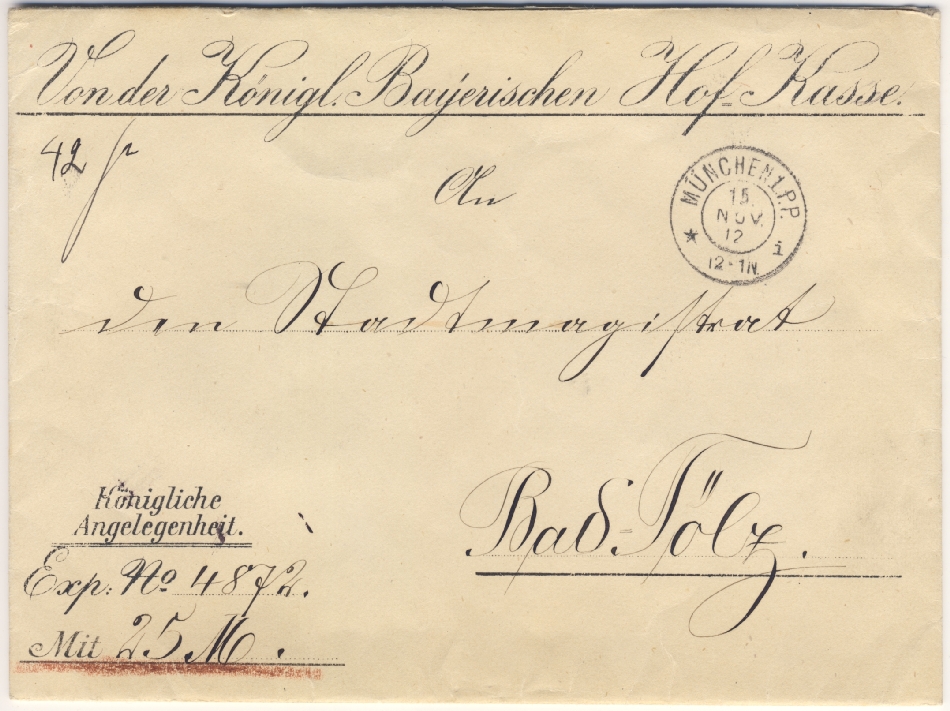 Von der Königl. Bayerischen Hof-Kasse.
42
An
MÜNCHEN 1.P.P.
15.
NOV.
12
12-1N.
i
den Stadtmagistrat
Bad-Tölz.
Königliche
Angelegenheit.
Exp: No 4872.
Mit 25 M.